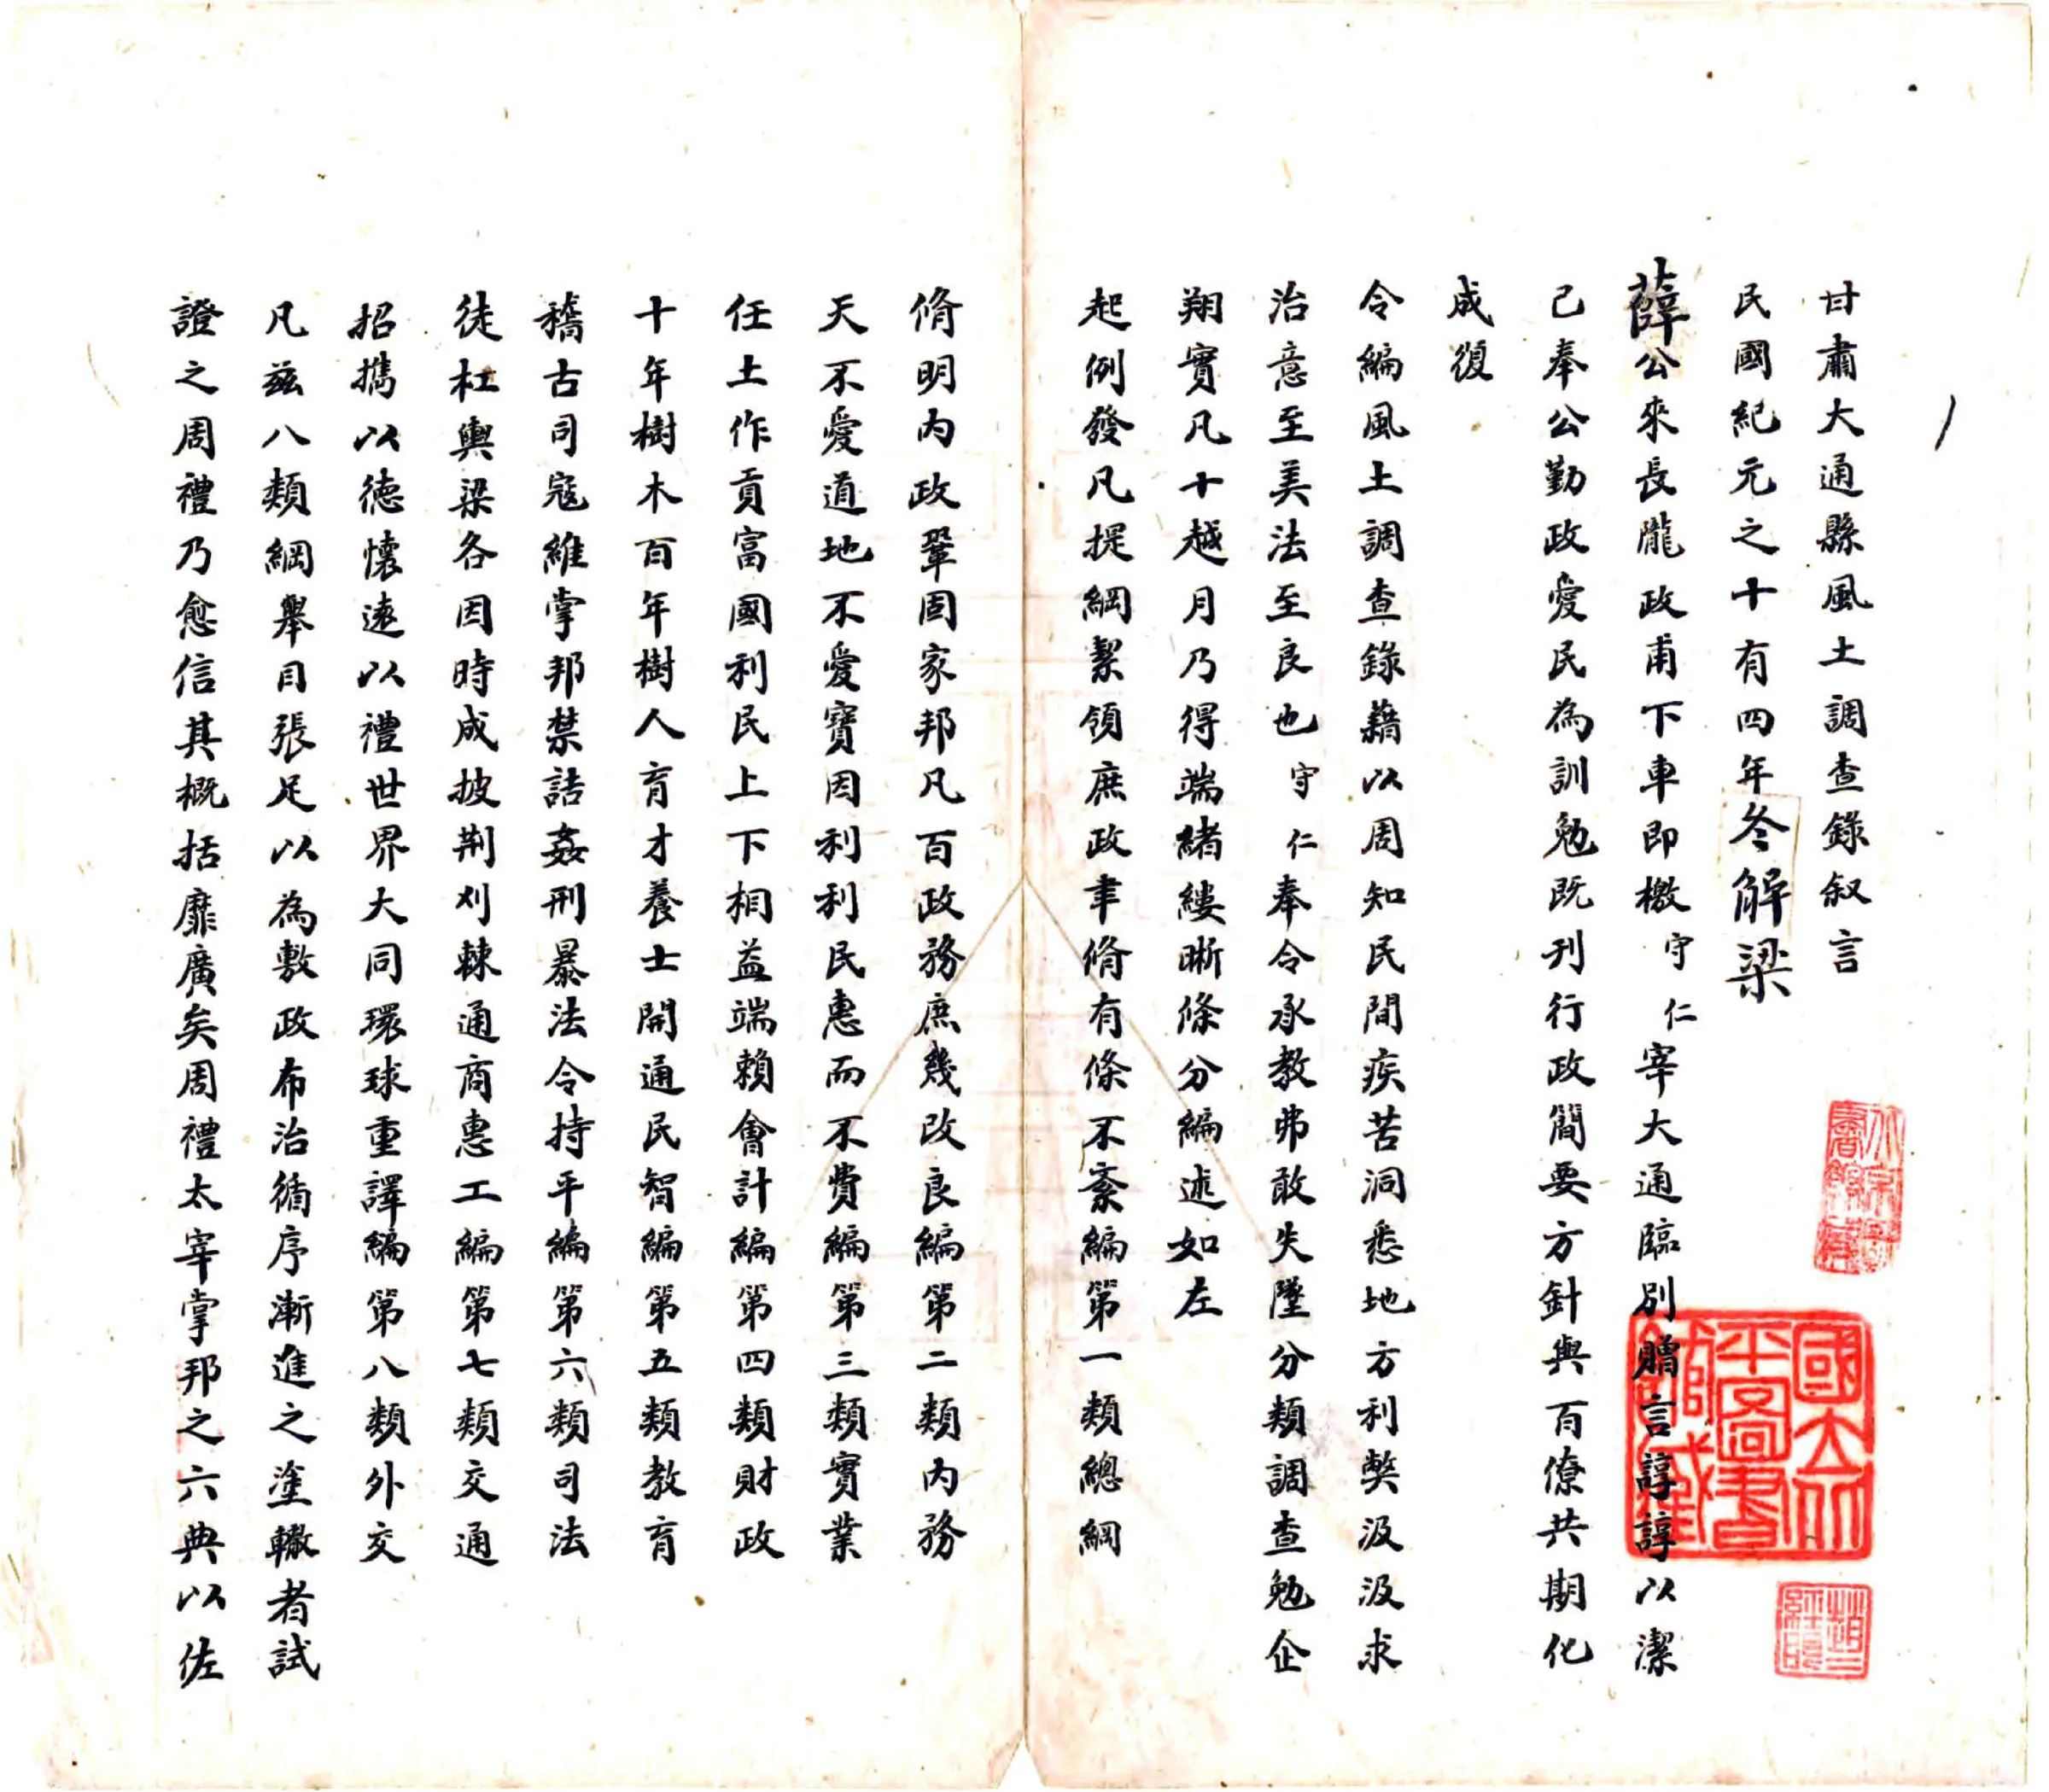 甘肅大通縣風土調查錄叙言
民國紀元之十有四年冬解梁
薛公來長隴政甫下車即檄守仁宰大通臨別贈言諄諄以潔
己奉公勤政愛民為訓勉既刊行政簡要方針與百僚共期化
成復
令編風土調查錄藉以周知民間疾苦洞悉地方利獘汲汲求
治意至美法至良也守仁奉令承教弗敢失墜分類調查勉企
翔實凡十越月乃得端緒縷晰條分編述如左
起例發凡提綱絜領庶政聿脩有條不紊編第一類總綱
脩明內政鞏固家邦凡百政務庶幾改良編第二類內務
天不愛道地不愛寶因利利民惠而不費編第三類實業
任土作貢富國利民上下相益端賴會計編第四類財政
十年樹木百年樹人育才養士開通民智編第五類教育
稽古司寇維掌邦禁詰姦刑暴法令持平編第六類司法
徒杠輿梁各因時成披荆刈棘通商惠工編第七類交通
招攜以德懷遠以禮世界大同環球重譯編第八類外交
凡茲八類綱舉目張足以為敷政布治循序漸進之塗轍者試
證之周禮乃愈信其概括靡廣矣周禮太宰掌邦之六典以佐
國立北平圖書館藏